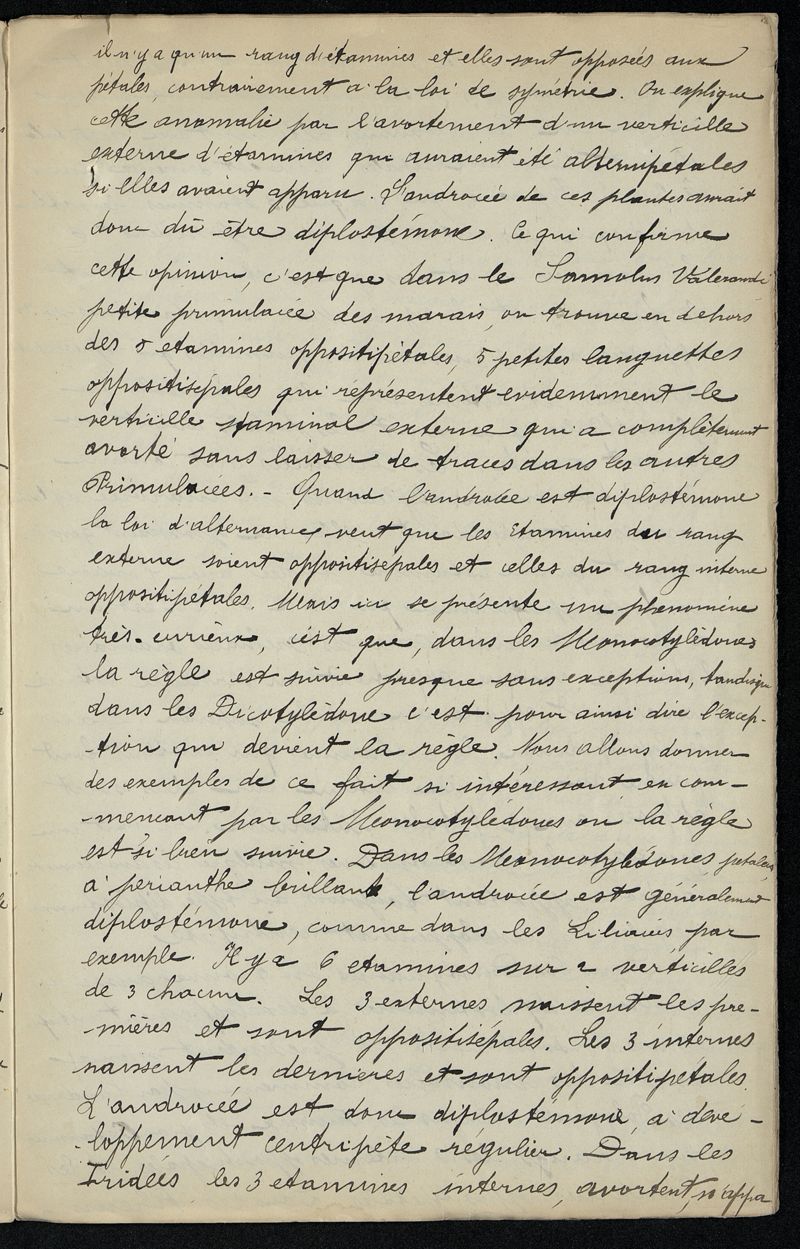 il n'y a qu'un rang d'étamines et elles sont opposées aux
pétales, contrairement a la loi de symétrie. On explique
cette anomalie par l'avortement d'un verticille
externe d'étamines qui auraient été alternipétales
si elles avaient apparu. L'androcée de ces plantes aurait
donc dû être diplostémone. Ce qui confirme
cette opinion, c'est que dans le Samolus Valerandi
petite primulacée des marais, on trouve en dehors
des 5 etamines oppositipétales, 5 petites languettes
oppositisépales qui représentent evidemment le
verticille staminal externe qui a complètement
avorté sans laisser de traces dans les autres
Primulacées. - Quand l'androcée est diplostémone
la loi d'alternance, veut que les Etamines du rang
externe soient oppositisepales et celles du rang interne
oppositipétales. Mais ici se présente un phenomène
très-curieux, c'est que, dans les Monocotylédones
la règle est suivie presque sans exceptions, tandisque
dans les Dicotylédone c'est pour ainsi dire l'excep-
-tion qui devient la règle. Nous allons donner
des exemples de ce fait si intéressant en com-
-mencant par les Monocotylédones ou la règle
est si bien suivie. Dans les Monocotylédones
a perianthe brillant, l'androcée est généralement
diplostémone, comme dans les Liliacées par
exemple. Il y a 6 etamines sur 2 verticilles
de 3 chacun. Les 3 externes naissent les pre-
-mières et sont oppositisépales. Les 3 internes
naissent les dernieres et sont oppositipétales.
L'androcée est donc diplostémone, a deve-
-loppement centripète régulier. Dans les
Iridées les 3 etamines internes, avortent,